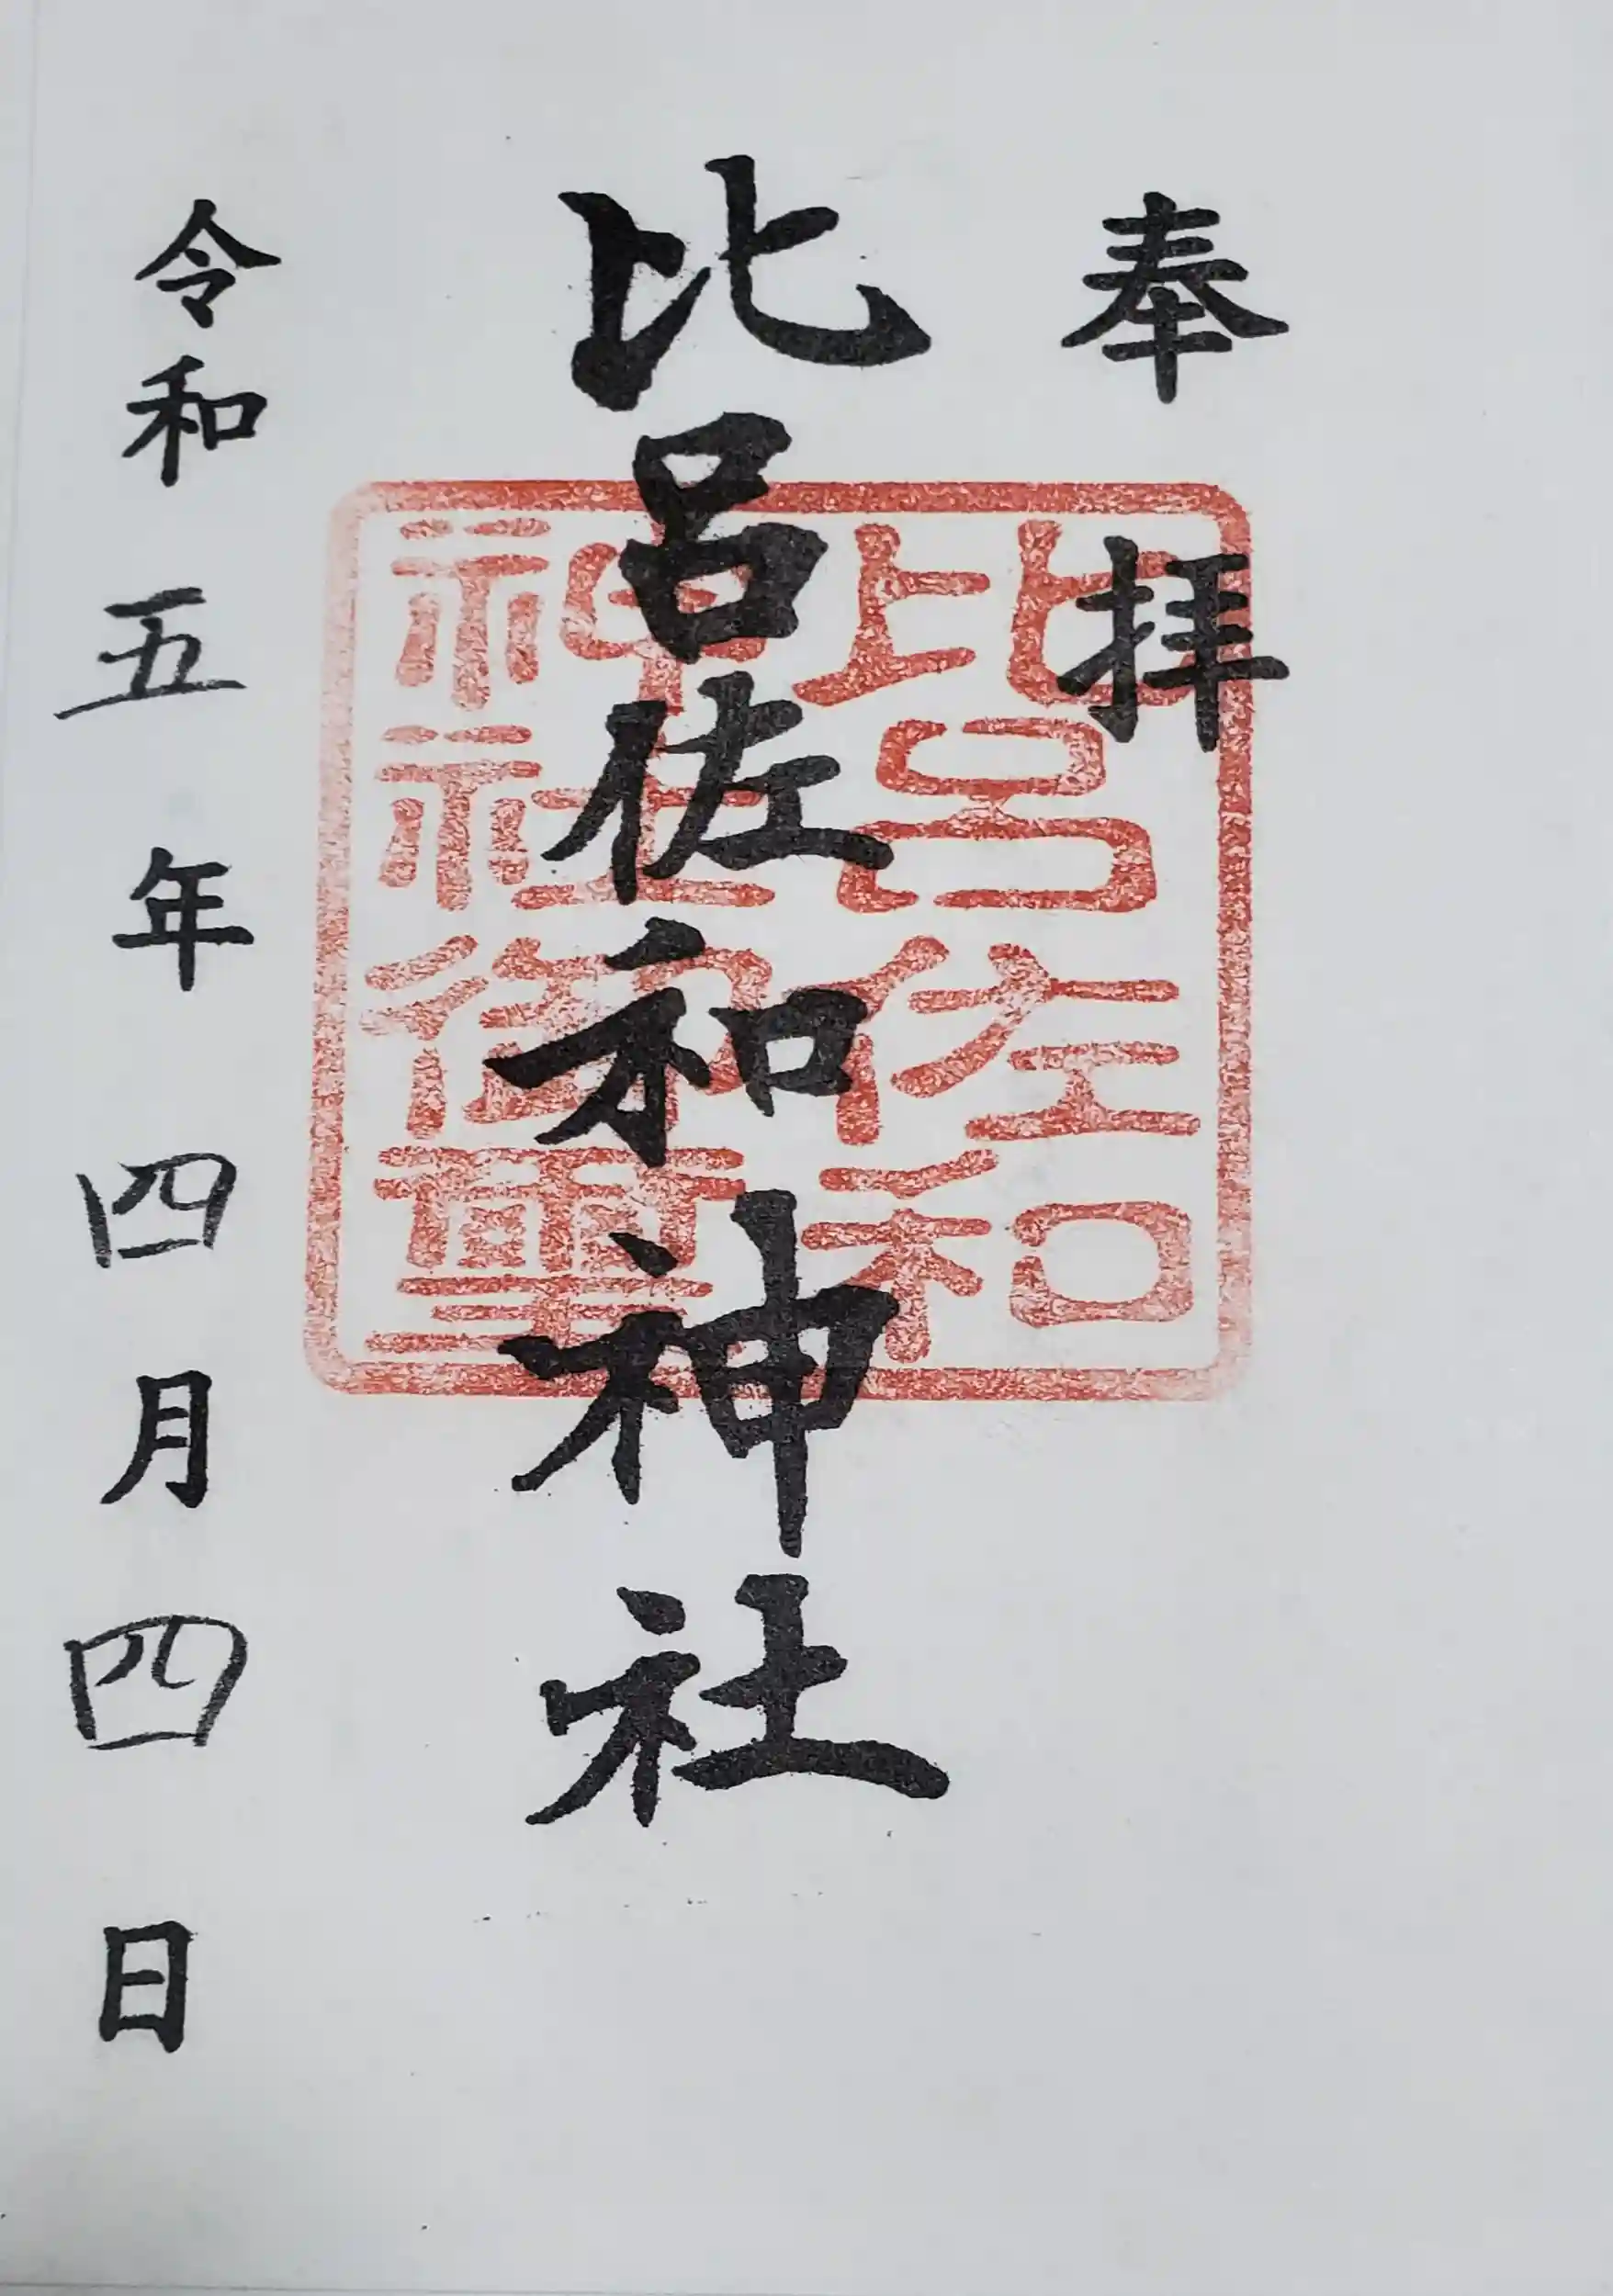 奉拝
比呂佐和神社
比呂佐和
神社御璽
令和五年四月四日